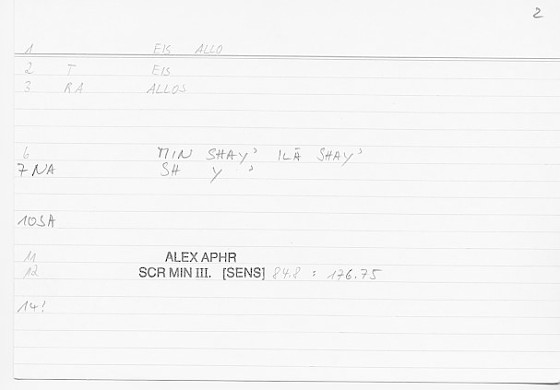 2
1 EIS ALLO
2 T EIS
3 RA ALLOS
6 MIN SHAY' ILĀ SHAY'
7 NA SH Y '
10 SA
11 ALEX APHR
12 SCR MIN III. [SENS] 84.8 : 176.75
14!